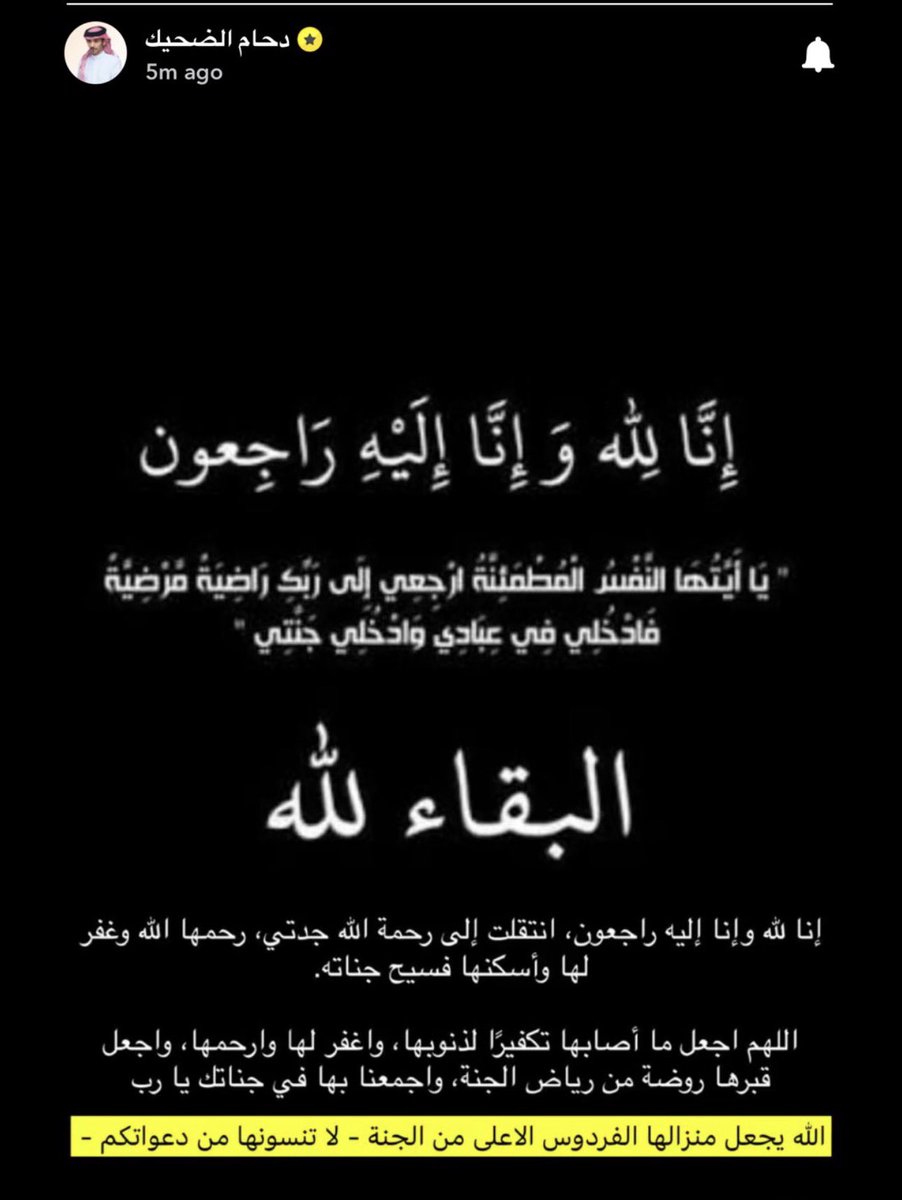 دحام الضحيك
5m ago
إِنَّا لِلّٰه وَ إِنَّا إِلَيْهِ رَاجِعون
" يَا أَيَّتُهَا النَّفْسُ الْمُطْمَئِنَّةُ ارْجِعِي إِلَى رَبِّكِ رَاضِيَةً مَّرْضِيَّةً
فَادْخُلِي فِي عِبَادِي وَادْخُلِي جَنَّتِي "
البقاء لله
إنا لله وإنا إليه راجعون، انتقلت إلى رحمة الله جدتي، رحمها الله وغفر
لها وأسكنها فسيح جناته.
اللهم اجعل ما أصابها تكفيرًا لذنوبها، واغفر لها وارحمها، واجعل
قبرها روضة من رياض الجنة، واجمعنا بها في جناتك يا رب
الله يجعل منزالها الفردوس الاعلى من الجنة - لا تنسونها من دعواتكم -